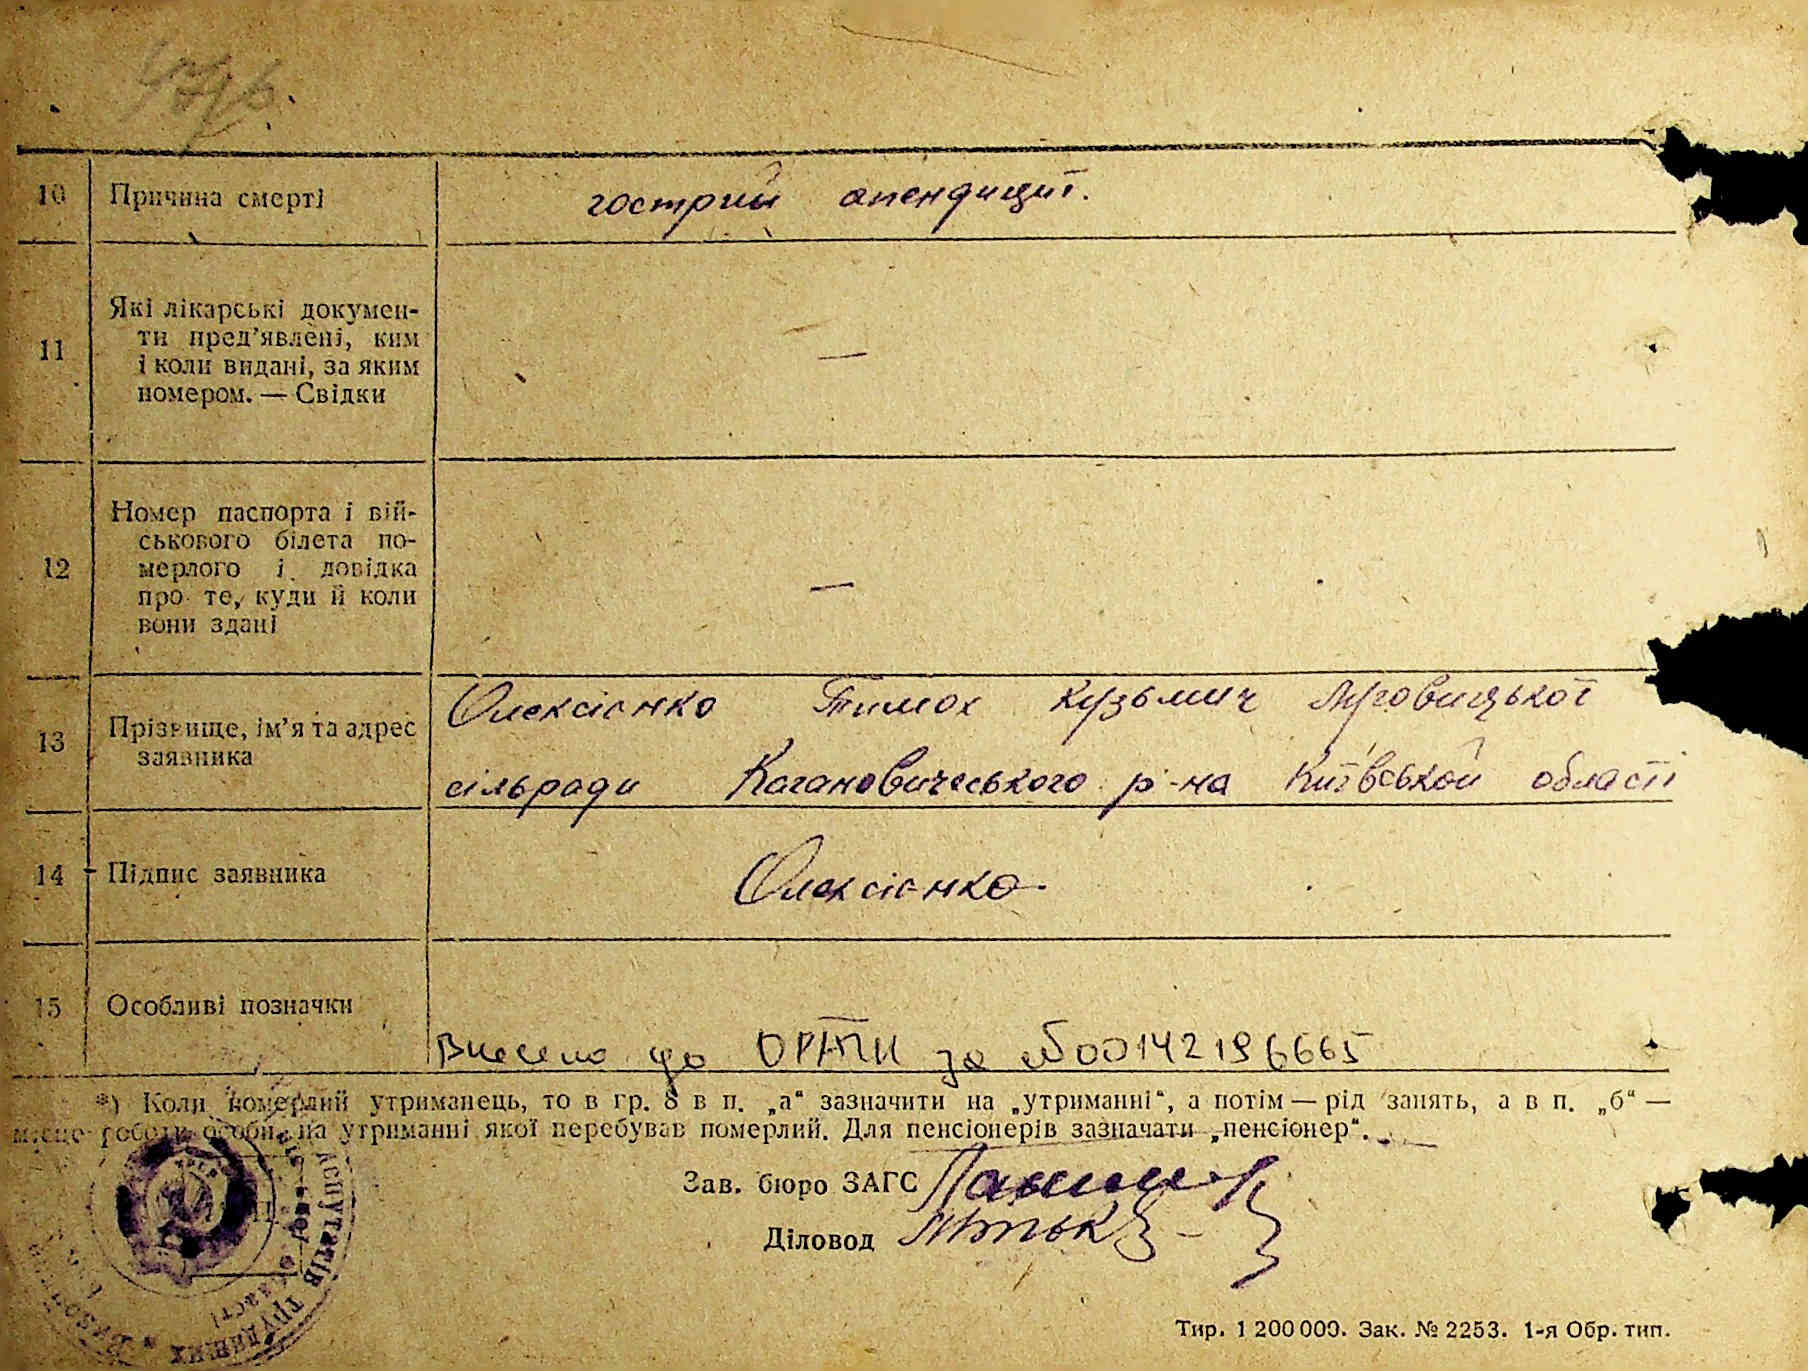 10 Причина смерті гострий апендицит.
11 Які лікарські докумен-
ти пред'явлені, ким
і коли видані, за яким
номером. — Свідки —
12 Номер паспорта і вій-
ськового білета по-
мерлого і довідка
про те, куди й коли
вони здані —
13 Прізвище, ім'я та адрес
заявника
Олексієнко Тимох Кузьмич Луговицької
сільради Кагановичеського р-на Київської області
14 Підпис заявника Олексієнко
15 Особливі позначки
Внесено до за №00142196665
*) Коли померлий утриманець, то в гр. 8 в п. „а“ зазначити на „утриманні“, а потім — рід занять, а в п. „б“ —
місце роботи особи, на утриманні якої перебував померлий. Для пенсіонерів зазначати „пенсіонер“.
Зав. бюро ЗАГС
Діловод
депутатів трудящих
Тир. 1 200 000. Зак. № 2253. 1-я Обр. тип.